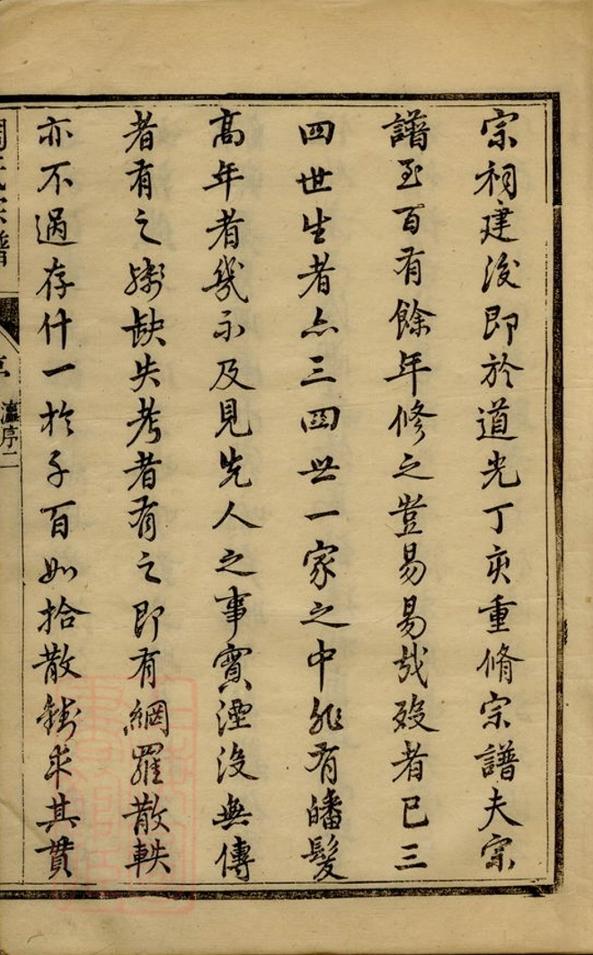 宗祠建後即於道光丁亥重脩宗譜夫宗
譜至百有餘年修之豈易易哉歿者已三
四世生者亦三四世一家之中非有皤髮
高年者幾不及見先人之事實湮沒無傳
者有之殘缺失考者有之即有網羅散軼
亦不過存什一於千百如拾散錢求其貫
氏宗譜
瀛序二